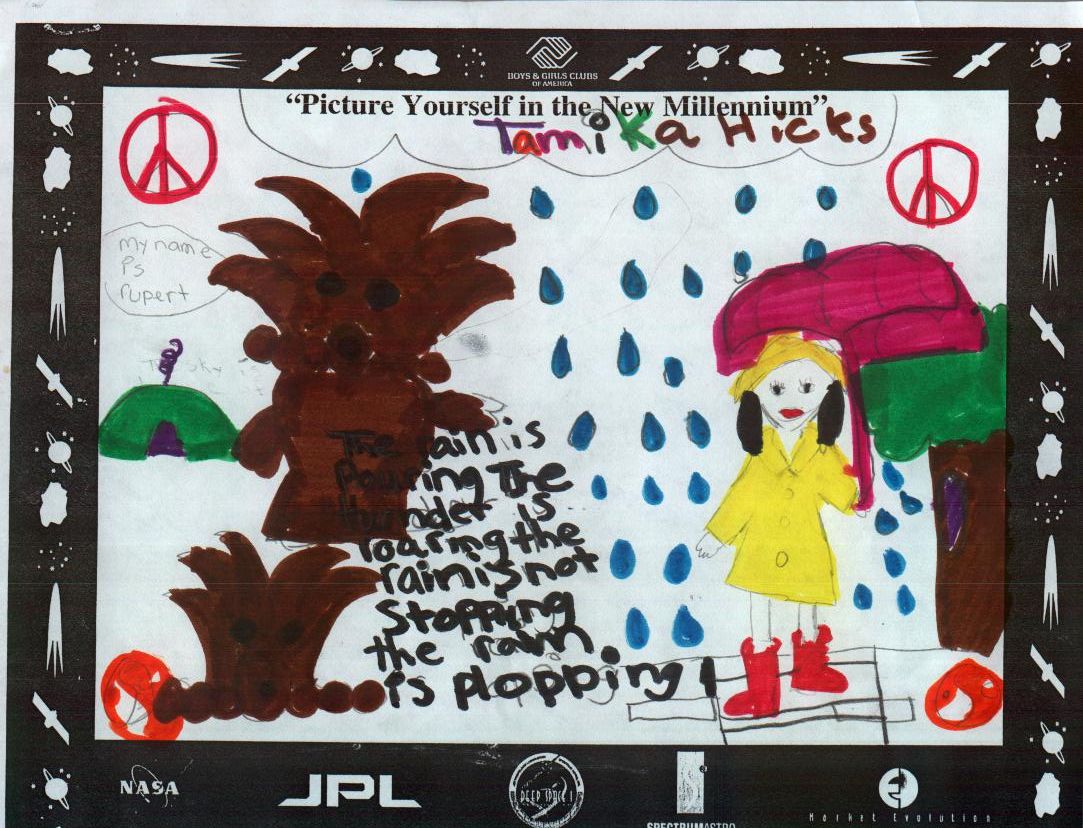 BOYS & GIRLS CLUBS
OF AMERICA
“Picture Yourself in the New Millennium”
TamiKa Hicks
my name
is
rupert
The rain is
Pouring The
thunder is
roaring the
rain is not
Stopping
the rain
is plopping!
NASA
JPL
DEEP SPACE 1
SPECTRUMASTRO
Market Evolution